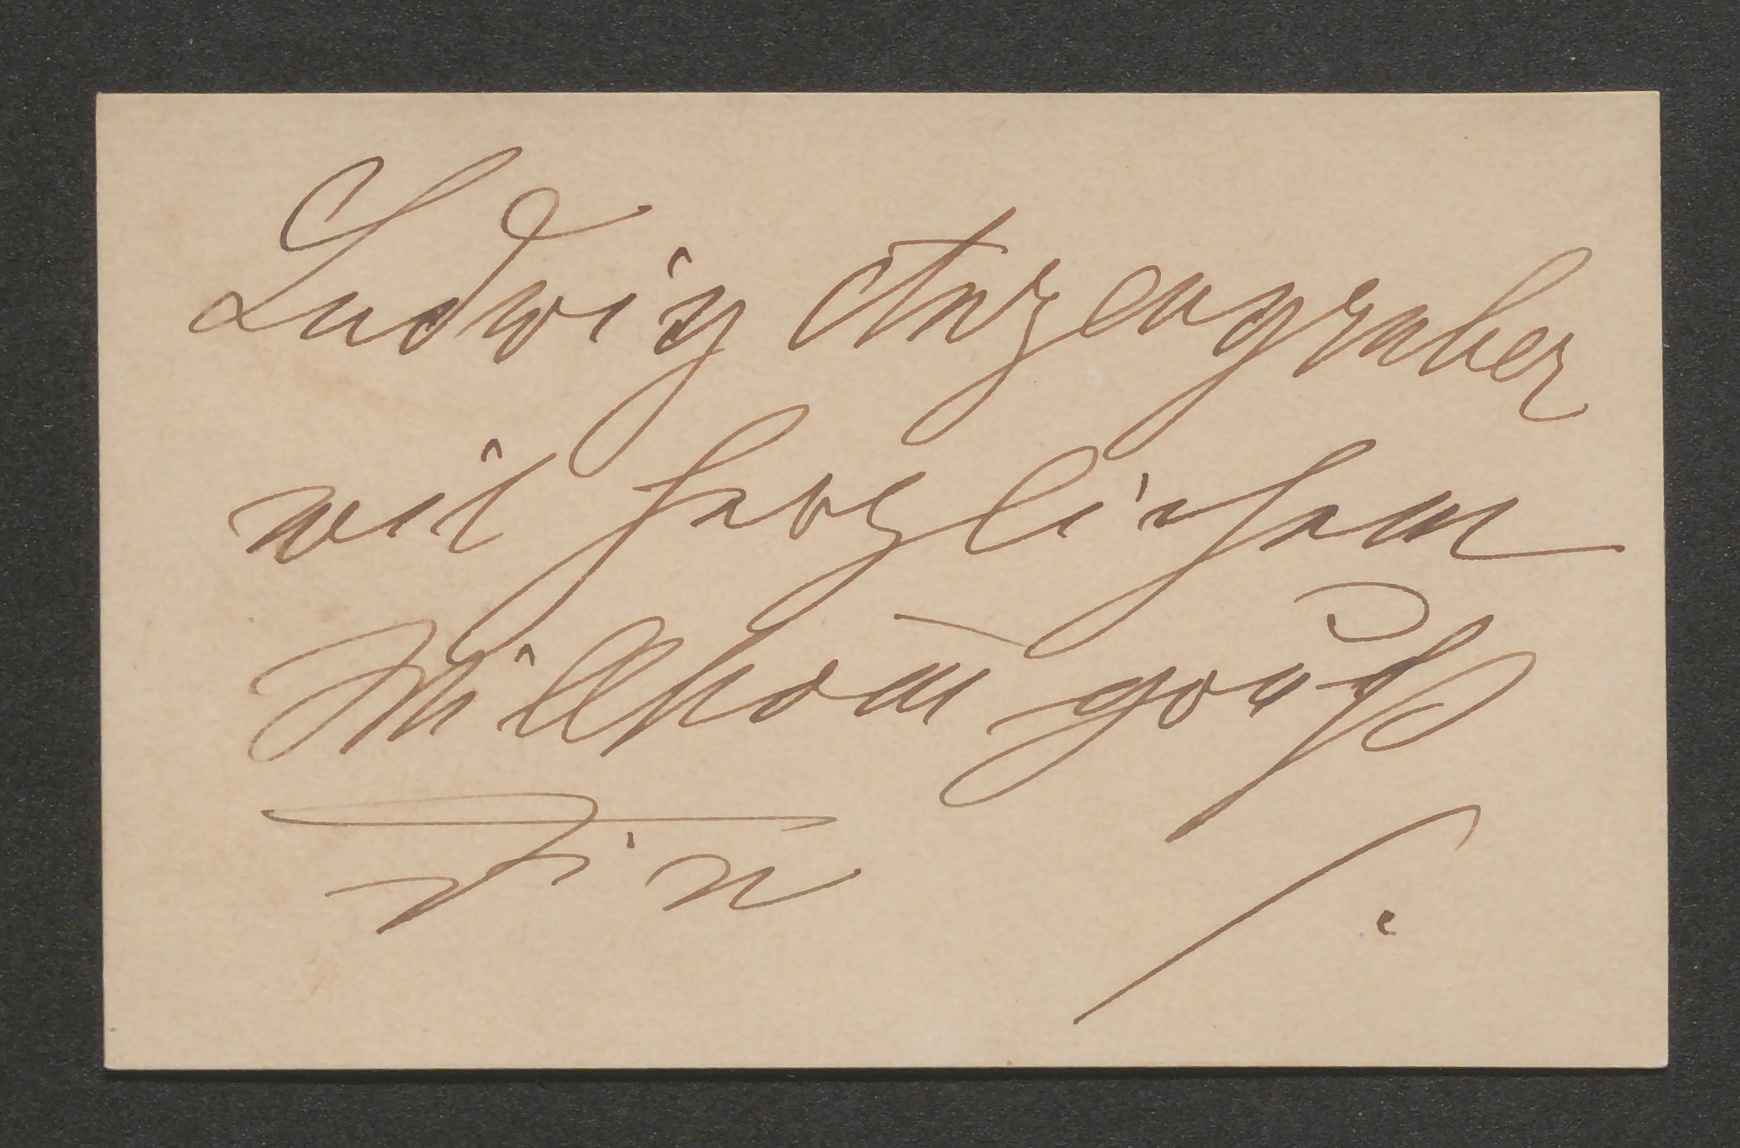 Ludwig Anzengruber
mit herzlichem
Willkom̄gruß